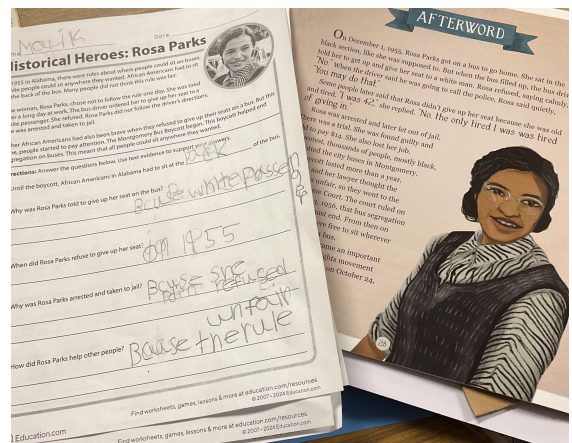 Malik
Date
Historical Heroes: Rosa Parks
1955 in Alabama, there were rules about where people could sit on buses.
White people could sit anywhere they wanted. African Americans had to sit
the back of the bus. Many people did not think this rule was fair.
woman, Rosa Parks, chose not to follow the rule one day. She was tired
er a long day at work. The bus driver ordered her to give up her seat to a
te passenger. She refused. Rosa Parks did not follow the driver's directions.
was arrested and taken to jail.
her African Americans had also been brave when they refused to give up their seats on a bus. But this
e, people started to pay attention. The Montgomery Bus Boycott began. This boycott helped end
regation on buses. This meant that all people could sit anywhere they wanted.
rections: Answer the questions below. Use text evidence to support your answers.
Until the boycott, African Americans in Alabama had to sit at the back of the bus.
Why was Rosa Parks told to give up her seat on the bus?
Bcause white passen
When did Rosa Parks refuse to give up her seat?
on 1955
Why was Rosa Parks arrested and taken to jail?
Bcause she
refused
How did Rosa Parks help other people?
Bcause the rule
unfair
Find worksheets, games, lessons & more at education.com/resources
© 2007 - 2024 Education.com
Education.com
Find worksheets, games, lessons & more at education.com/resources
© 2007 - 2024 Education.com
AFTERWORD
On December 1, 1955, Rosa Parks got on a bus to go home. She sat in the
black section, like she was supposed to. But when the bus filled up, the bus driver
told her to get up and give her seat to a white man. Rosa refused, saying calmly,
"No." When the driver said he was going to call the police, Rosa said quietly,
"You may do that."
Some people later said that Rosa didn't give up her seat because she was old
and tired. "I was 42," she replied. "No, the only tired I was was tired
of giving in."
Rosa was arrested and later let out of jail.
here was a trial. She was found guilty and
d to pay $14. She also lost her job.
rotest, thousands of people, mostly black,
tted the city buses in Montgomery.
ycott lasted more than a year.
and her lawyer thought the
s unfair, so they went to the
me Court. The court ruled on
, 1956, that bus segregation
ust end. From then on
ere free to sit wherever
bus.
ame an important
ghts movement
on October 24,
28